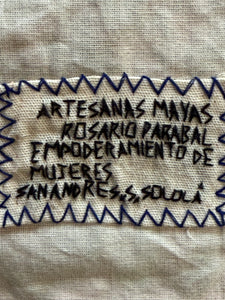 ARTESANAS MAYAS
ROSARIO PARABAL
EMPODERAMIENTO DE
MUJERES
SANANDRES,S,SOLOLÁ